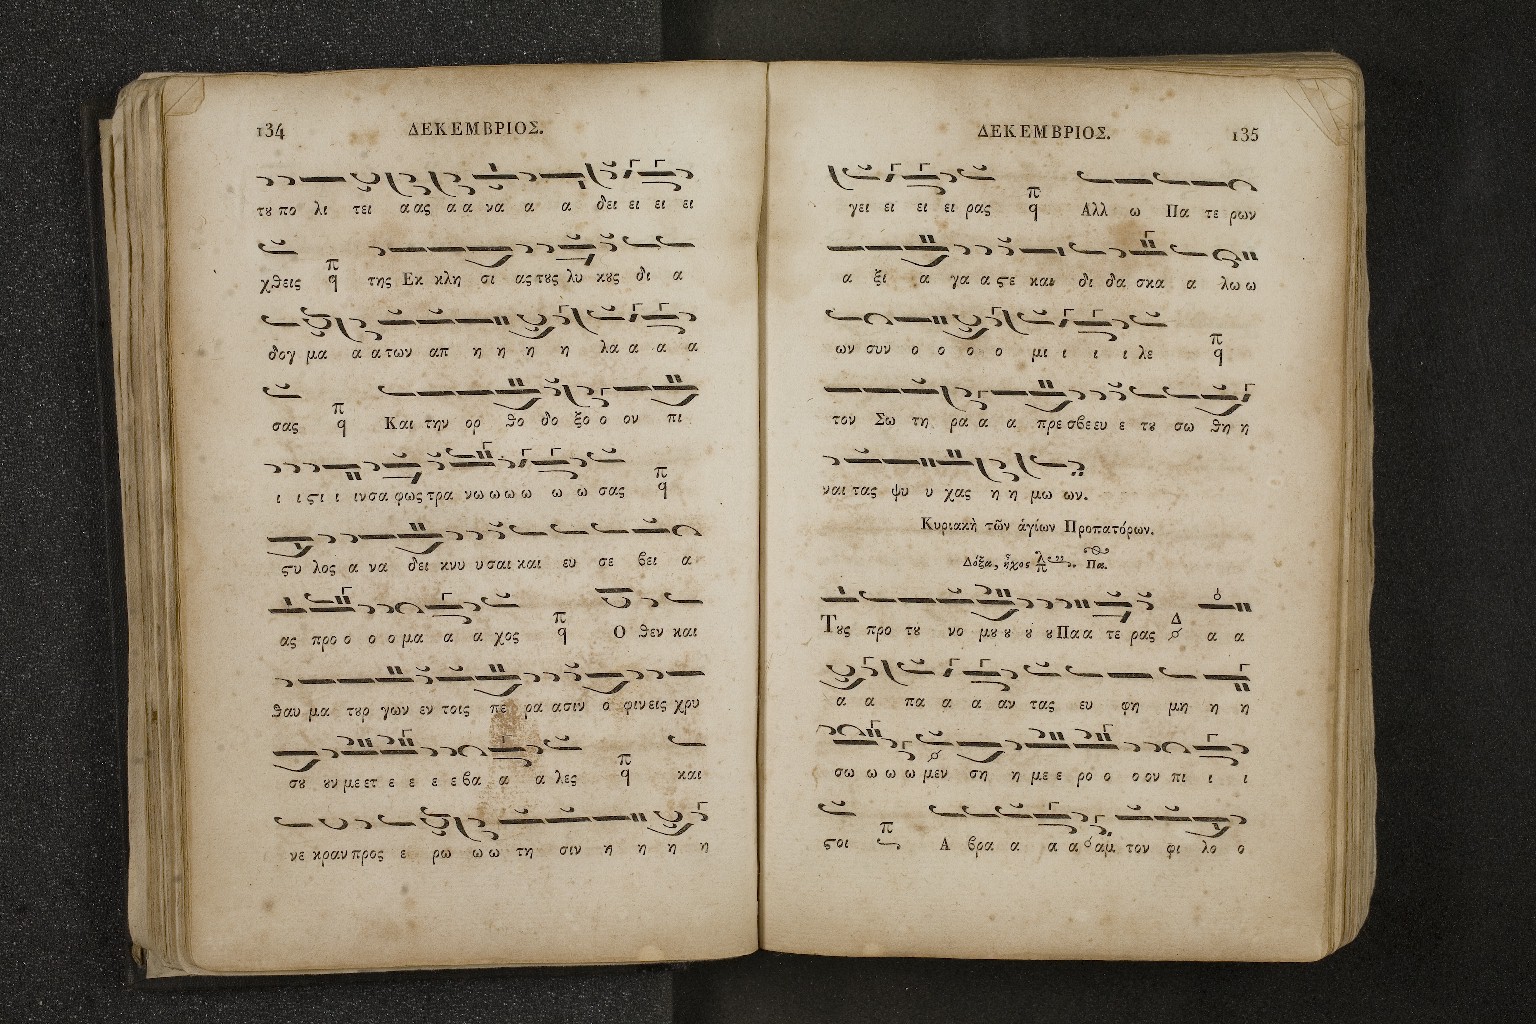 134 ΔΕΚΕΜΒΡΙΟΣ.
τȣ πο λι τει α ας α α να α α δει ει ει ει
χθεις π q της Εκ κλη σι ας τȣς λυ κȣς δι α
δογ μα α α των απ η η η η λα α α α
σας π q Και την ορ θο δο ξο ο ον πι
ι ι ϛι ι ιν σα φως τρα νω ω ω ω ω ω σας π q
ϛυ λος α να δει κνυ υ σαι και ευ σε βει α
ας προ ο ο ο μα α α χος π q Ο θεν και
θαυ μα τȣρ γων εν τοις πε ρα α σιν ο φι νεις χρυ
σȣ ȣν με ετ ε ε ε ε βα α α λες π q και
νε κραν προς ε ρω ω ω τη σιν η η η η
ΔΕΚΕΜΒΡΙΟΣ. 135
γει ει ει ει ρας π q Αλλ ω Πα τε ρων
α ξι α γα α ϛε και δι δα σκα α λω ω
ων συν ο ο ο ο μι ι ι ι λε π q
τον Σω τη ρα α α πρε σβε ευ ε τȣ σω θη η
ναι τας ψυ υ χας η η μω ων.
Κυριακὴ τῶν ἁγίων Προπατόρων.
Δόξα, ἦχος Πα.
Τȣς προ τȣ νο μȣ ȣ ȣ ȣ Πα α τε ρας Δ α α
α α πα α α αν τας ευ φη μη η η
σω ω ω ω μεν ση η με ε ρο ο ο ον πι ι ι
ϛοι π Α βρα α α α αμ τον φι λο ο